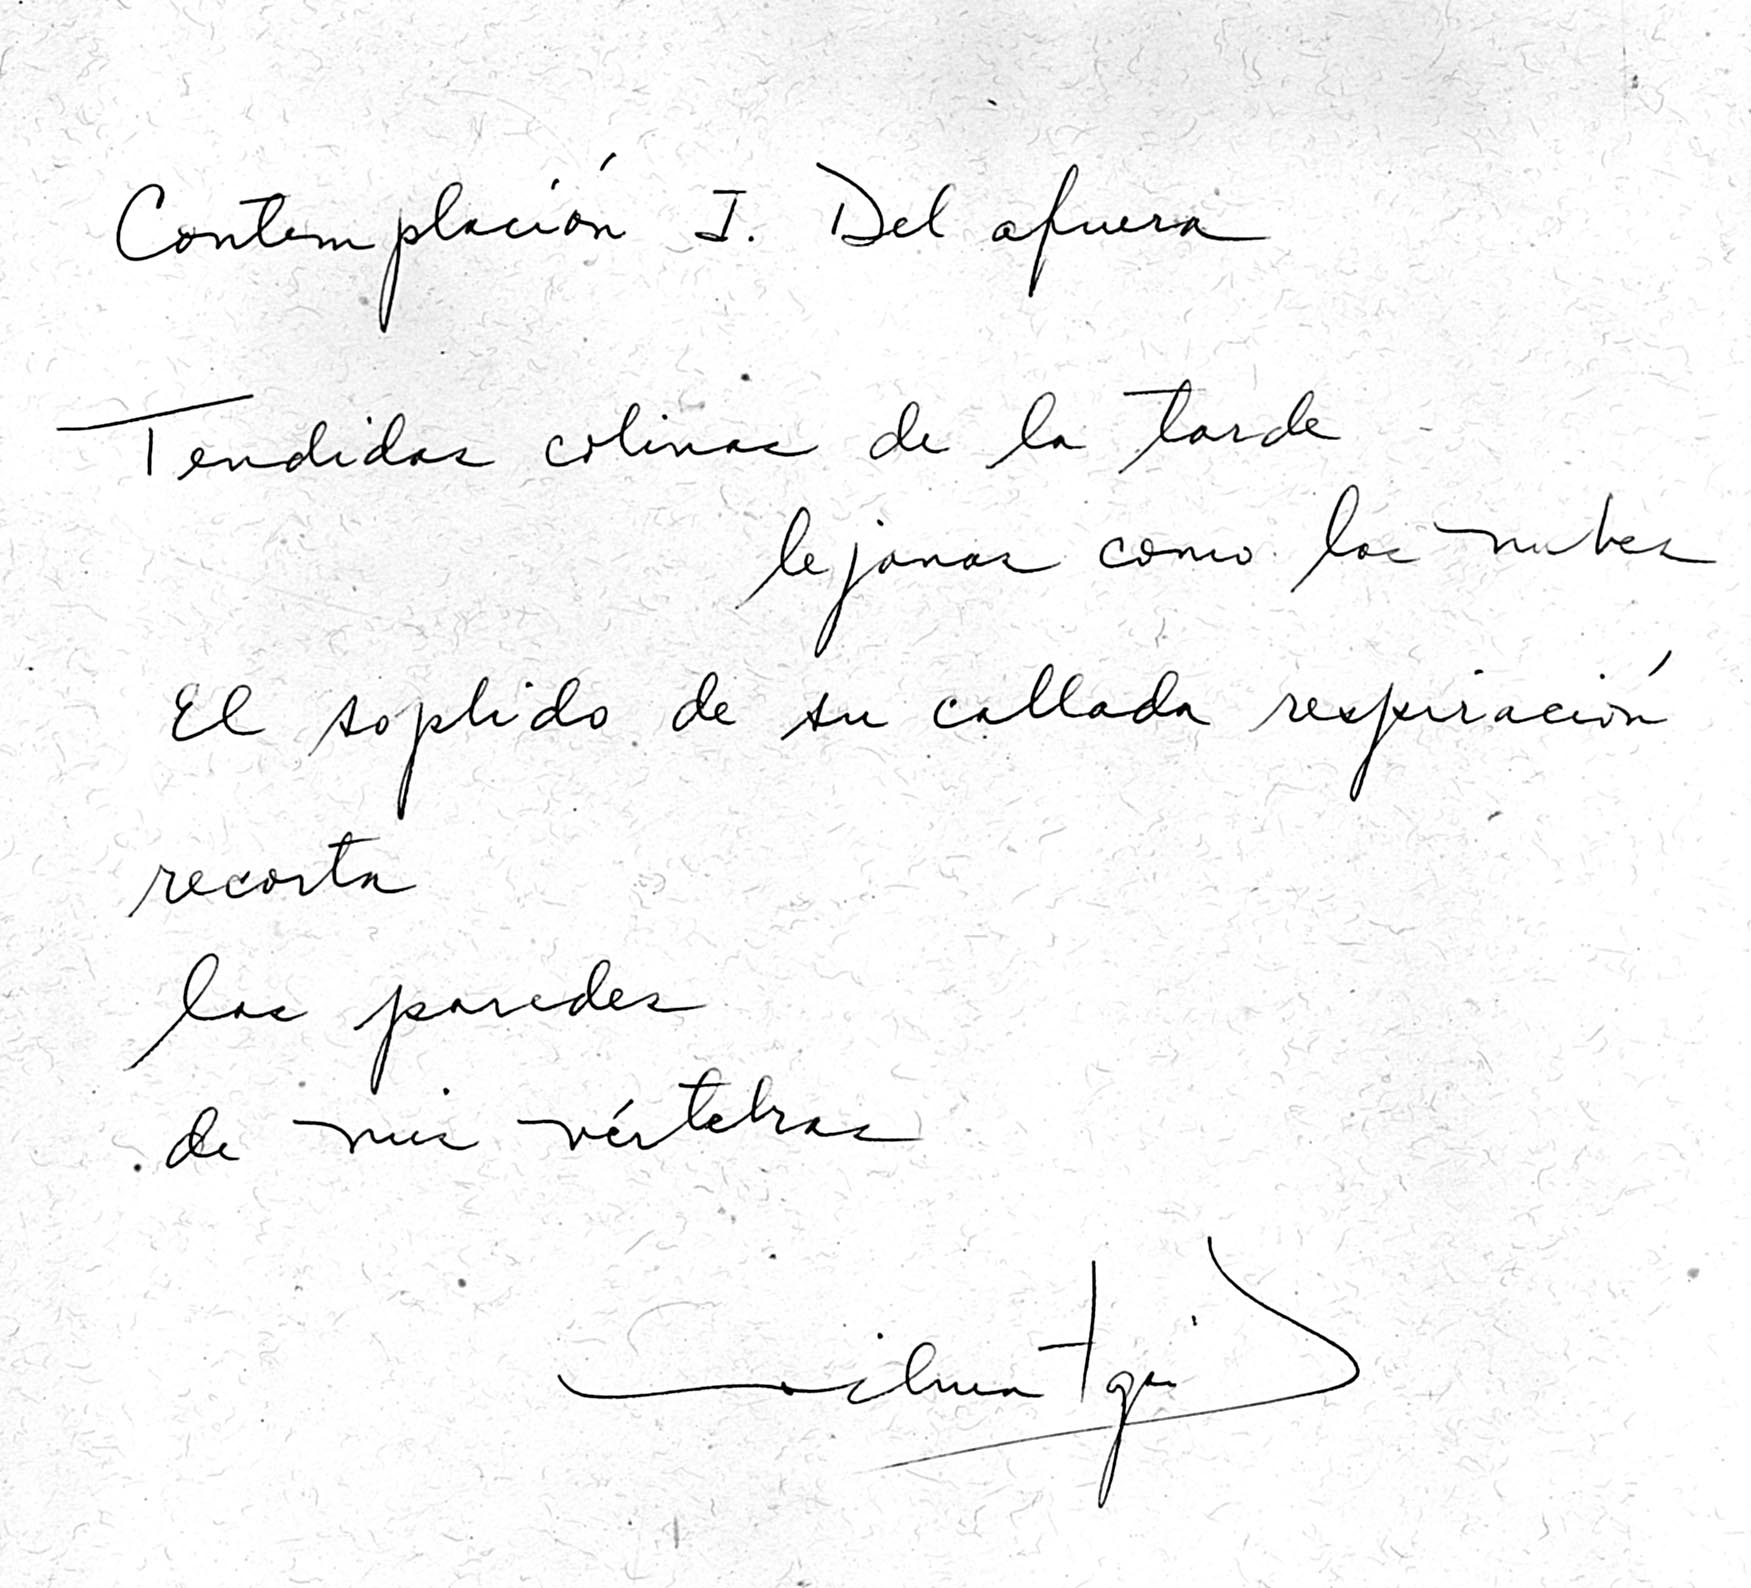 Contemplación I. Del afuera
Tendidas colinas de la tarde
lejanas como las nubes
El soplido de su callada respiración
recorta
las paredes
de mis vértebras